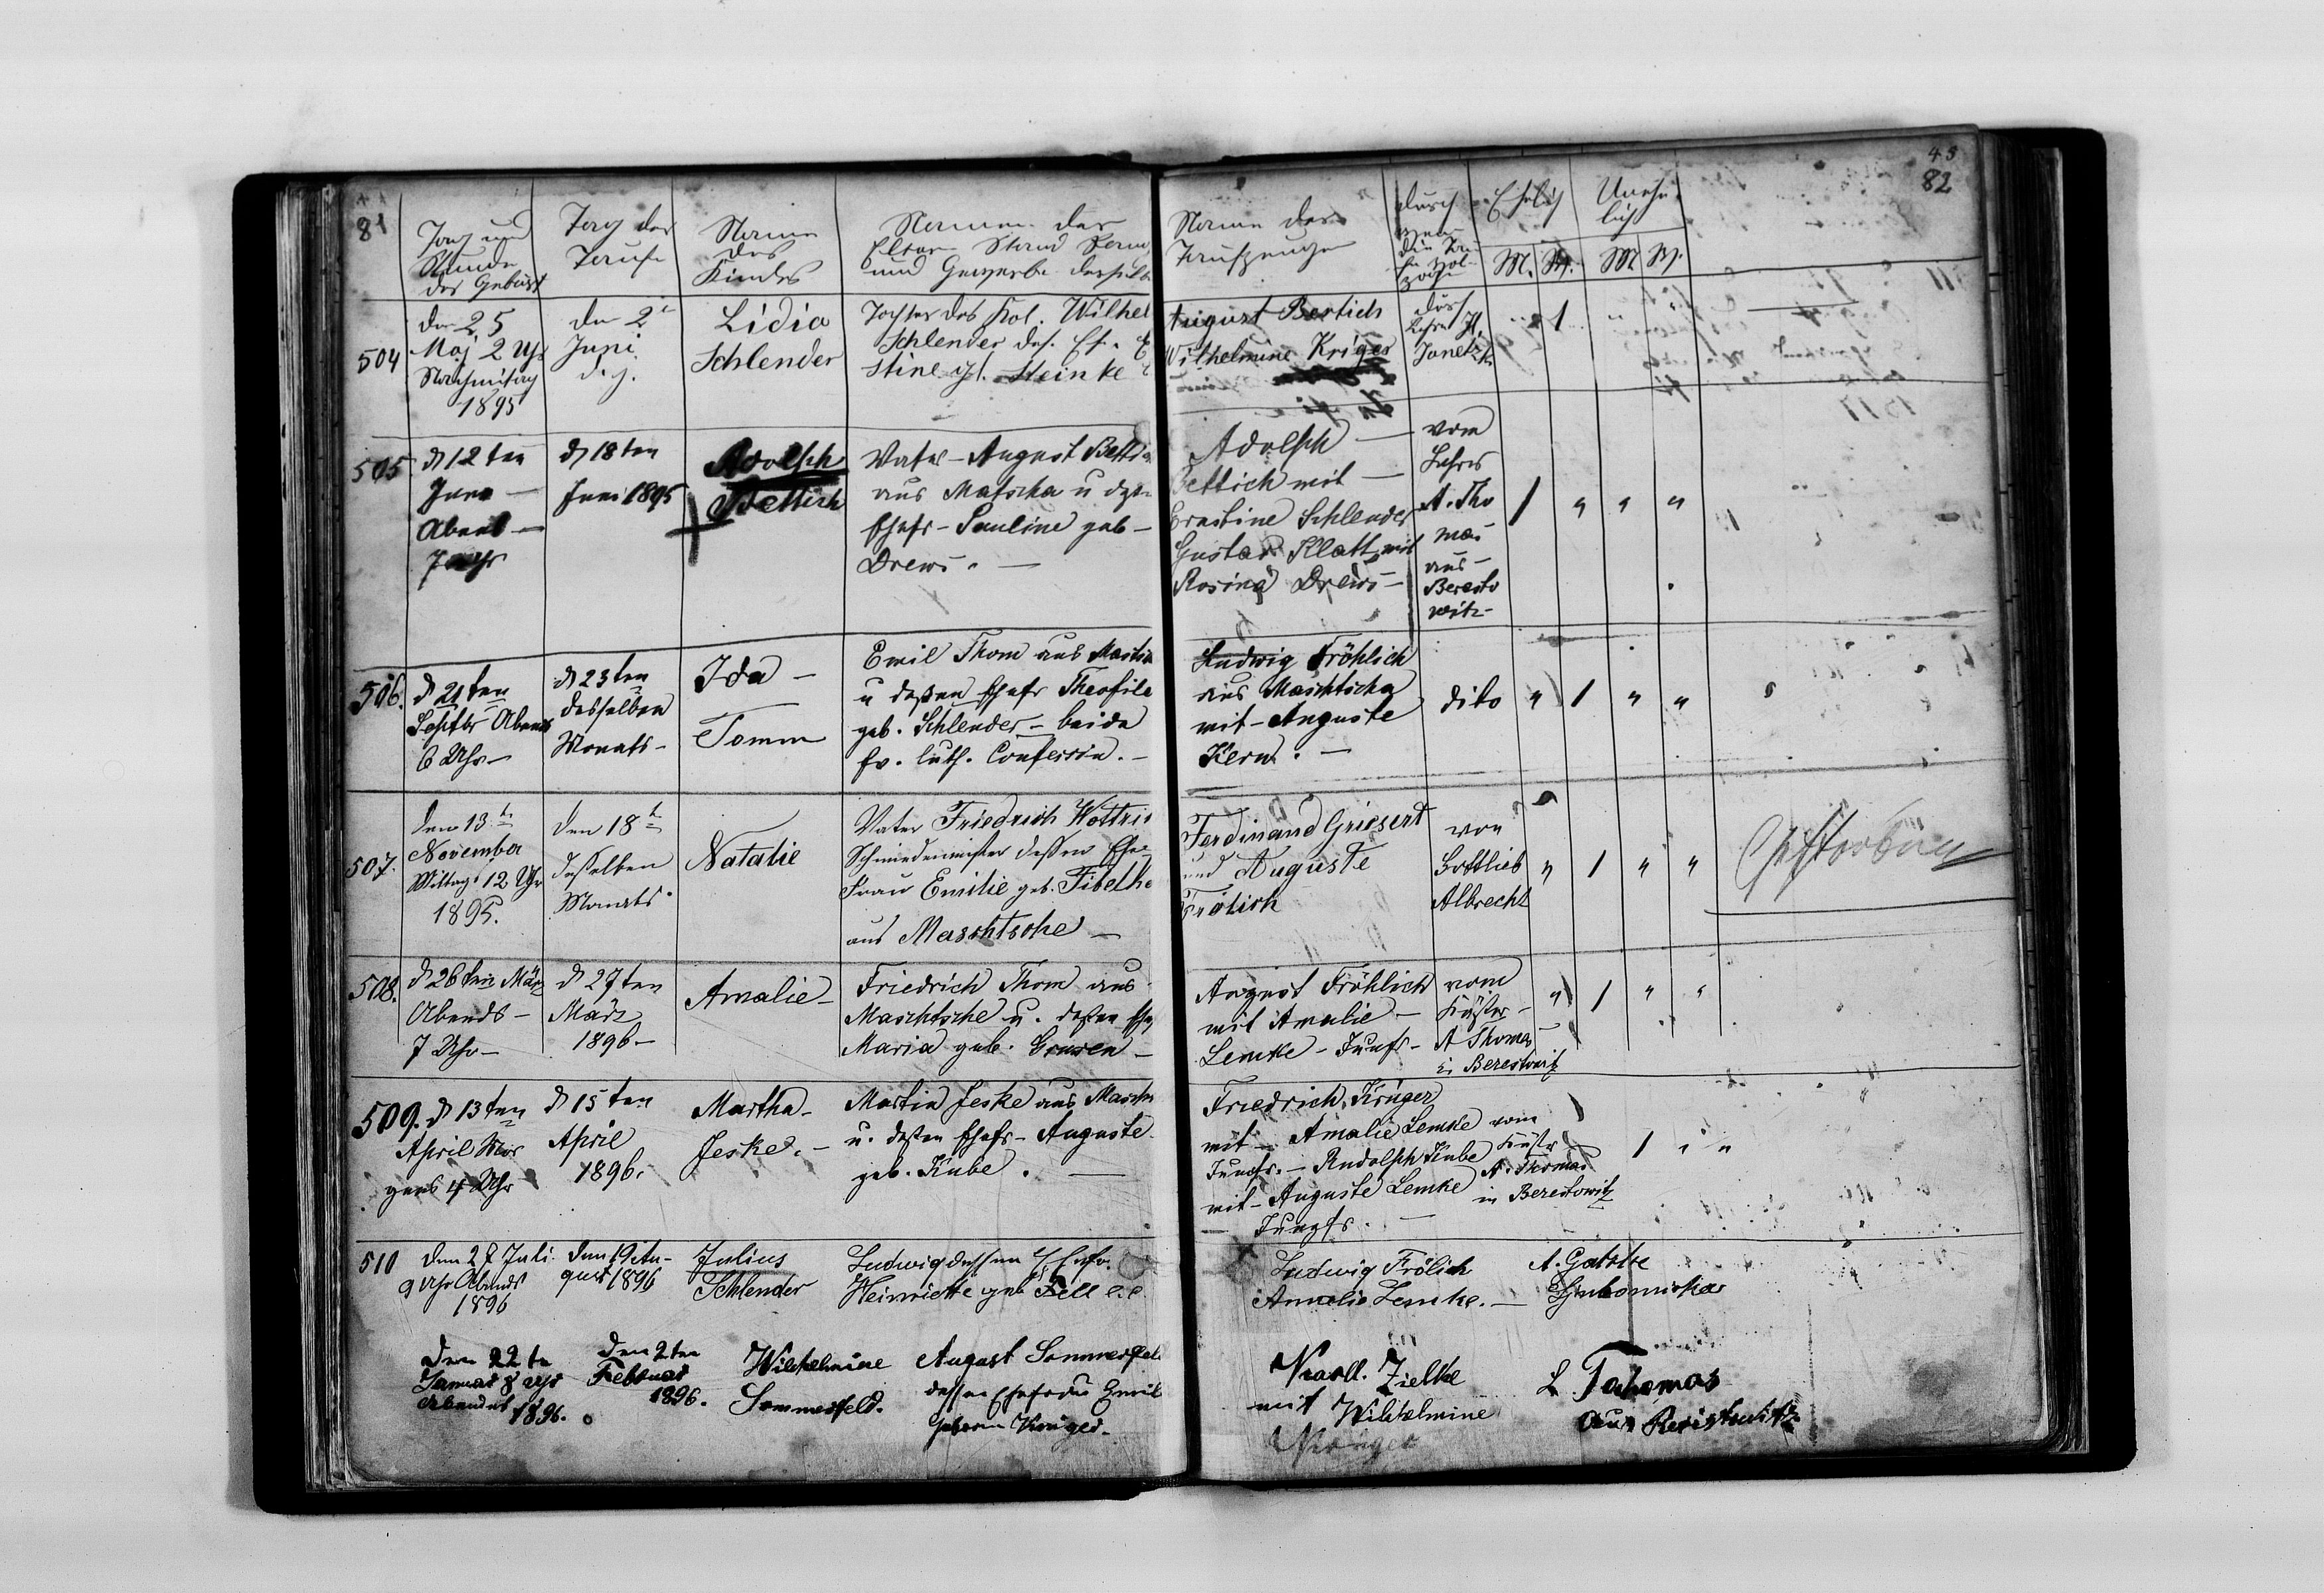 81
Tag und
Stunde
der Geburt
Tag der
Taufe
Name
des
Kindes
Namen der
Eltern Stand
und Gewerbe derselbe
504
den 25
Maj 2 Uhr
Nachmitag
1895
den 2
Juni
d. J.
Lidia
Schlender
Tochter des Kol. Wilhel
Schlender des. Ef.
stine g. Steinke
505
d 12 ten
Juni —
Abend —
7 Uhr
d 18 ten
Juni 1895
Adolph
Bettich
Vater – August Bettic
aus Matscha u
Ehefr – Pauline geb –
Drews. —
506.
d 21 ten
Septbr Abends
6 Uhr –
d 23 ten
desselben
Monats –
Ida –
Tomm
Emil Thom aus
u deßen Ehefr Theofile
geb. Schlender – beide
ev. luth. Confession. –
507.
den 13 t
November
Mittag 12 Uhr
1895.
den 18 t
desselben
Monats.
Natalie
Vater Friedrich Wottri
Schmiedemeister deßen Ehe
Frau Emilie geb. Fibelke
aus Maschtsche –
508.
d 26 ten März
Abends –
7 Uhr –
d 27 ten
März
1896 –
Amalie –
Friedrich Thom aus
Maschtsche u. deßen Ehef
Maria geb. –
509.
d 13 ten
April Mor
gens 4 Uhr
d 15 ten
April
1896.
Martha –
Jeske. –
Martin Jeske aus Masch
u. deßen Ehefr – Auguste
geb. Kube. —
510
den 28 Juli
9 Uhr Abends
1896
den 19 Au-
gust 1896
Julius
Schlender
Ludwig dessen Ehefr.
Heinriette geb
Den 22 te
Januar 8 Uhr
Abends 1896.
den 2 ten
Februar
1896.
Wilhelmine
Sommerfeld.
August Sommerfel
dessen Ehefrau Emil
Geboren Krüger.
43
82
Name der
Taufzeugen
durch
wen
die Tau-
fe vol-
zogen
Ehelich
M. W.
Unehe-
lich
M W.
August Bertich
Wilhelmine Kriger
durch
Lehrer
Janetzk
" 1 " "
Adolph —
Bettich mit —
Ernstine Schlender
Gustav Klatt mit
Rosina Drews –
vom
Lehrer
A. Tho
mas
aus –
Beresto
witz –
1 " " "
Ludwig Fröhlich
aus Maschtscha
mit – Auguste
Kern. —
dito " 1 " "
Ferdinand Griesert
und Auguste
Frölich
von
Gottlieb
Albrecht
" 1 " "
Gestorben
August Fröhlich
mit Amalie –
Lemke – Jungfr –
vom
Küster –
A Thomas
in Berestowitz
" 1 " "
Friedrich Krüger
mit – Amalie Lemke
Jungfr. – Rudolph Kube
mit – Auguste Lemke
— Jungfr. —
vom
Küster
A. Thomas
in Berestowitz
1 " "
Ludwig Frölich
Amalie Lemke. —
A. Gatzke
Karll. Zielke
mit Wilhelmine
Krüger
L. Tahomas
aus